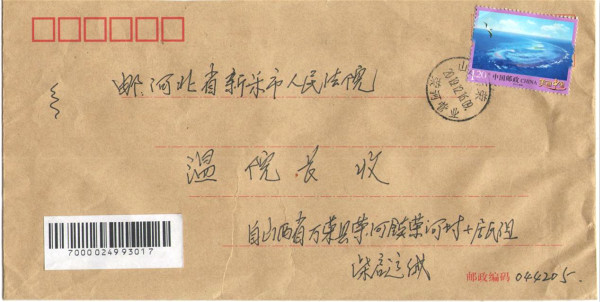 1.20元 中国邮政 CHINA
邮:河北省新乐市人民法院
温院长 收
7000024993017
自山西省万荣县荣河镇荣河村十居民组
邮政编码 044205.